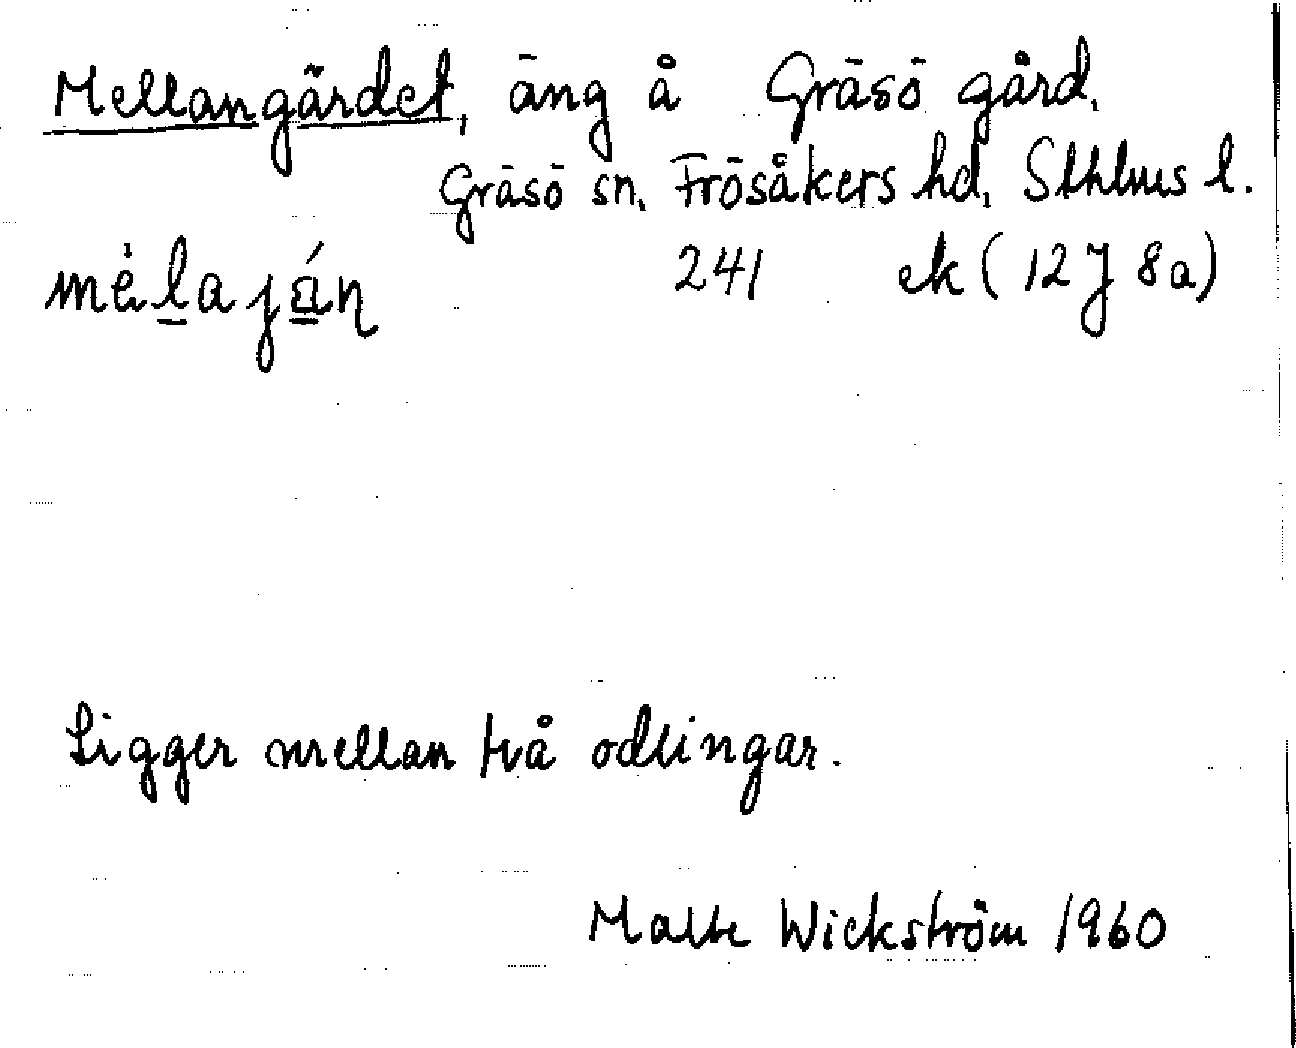 Mellangärdet, äng å Gräsö gård.
Gräsö sn. Frösåkers hd, Sthlms l.
mèlaján 241 ek (12J 8a)
Ligger mellan två odlingar.
Malte Wickström 1960